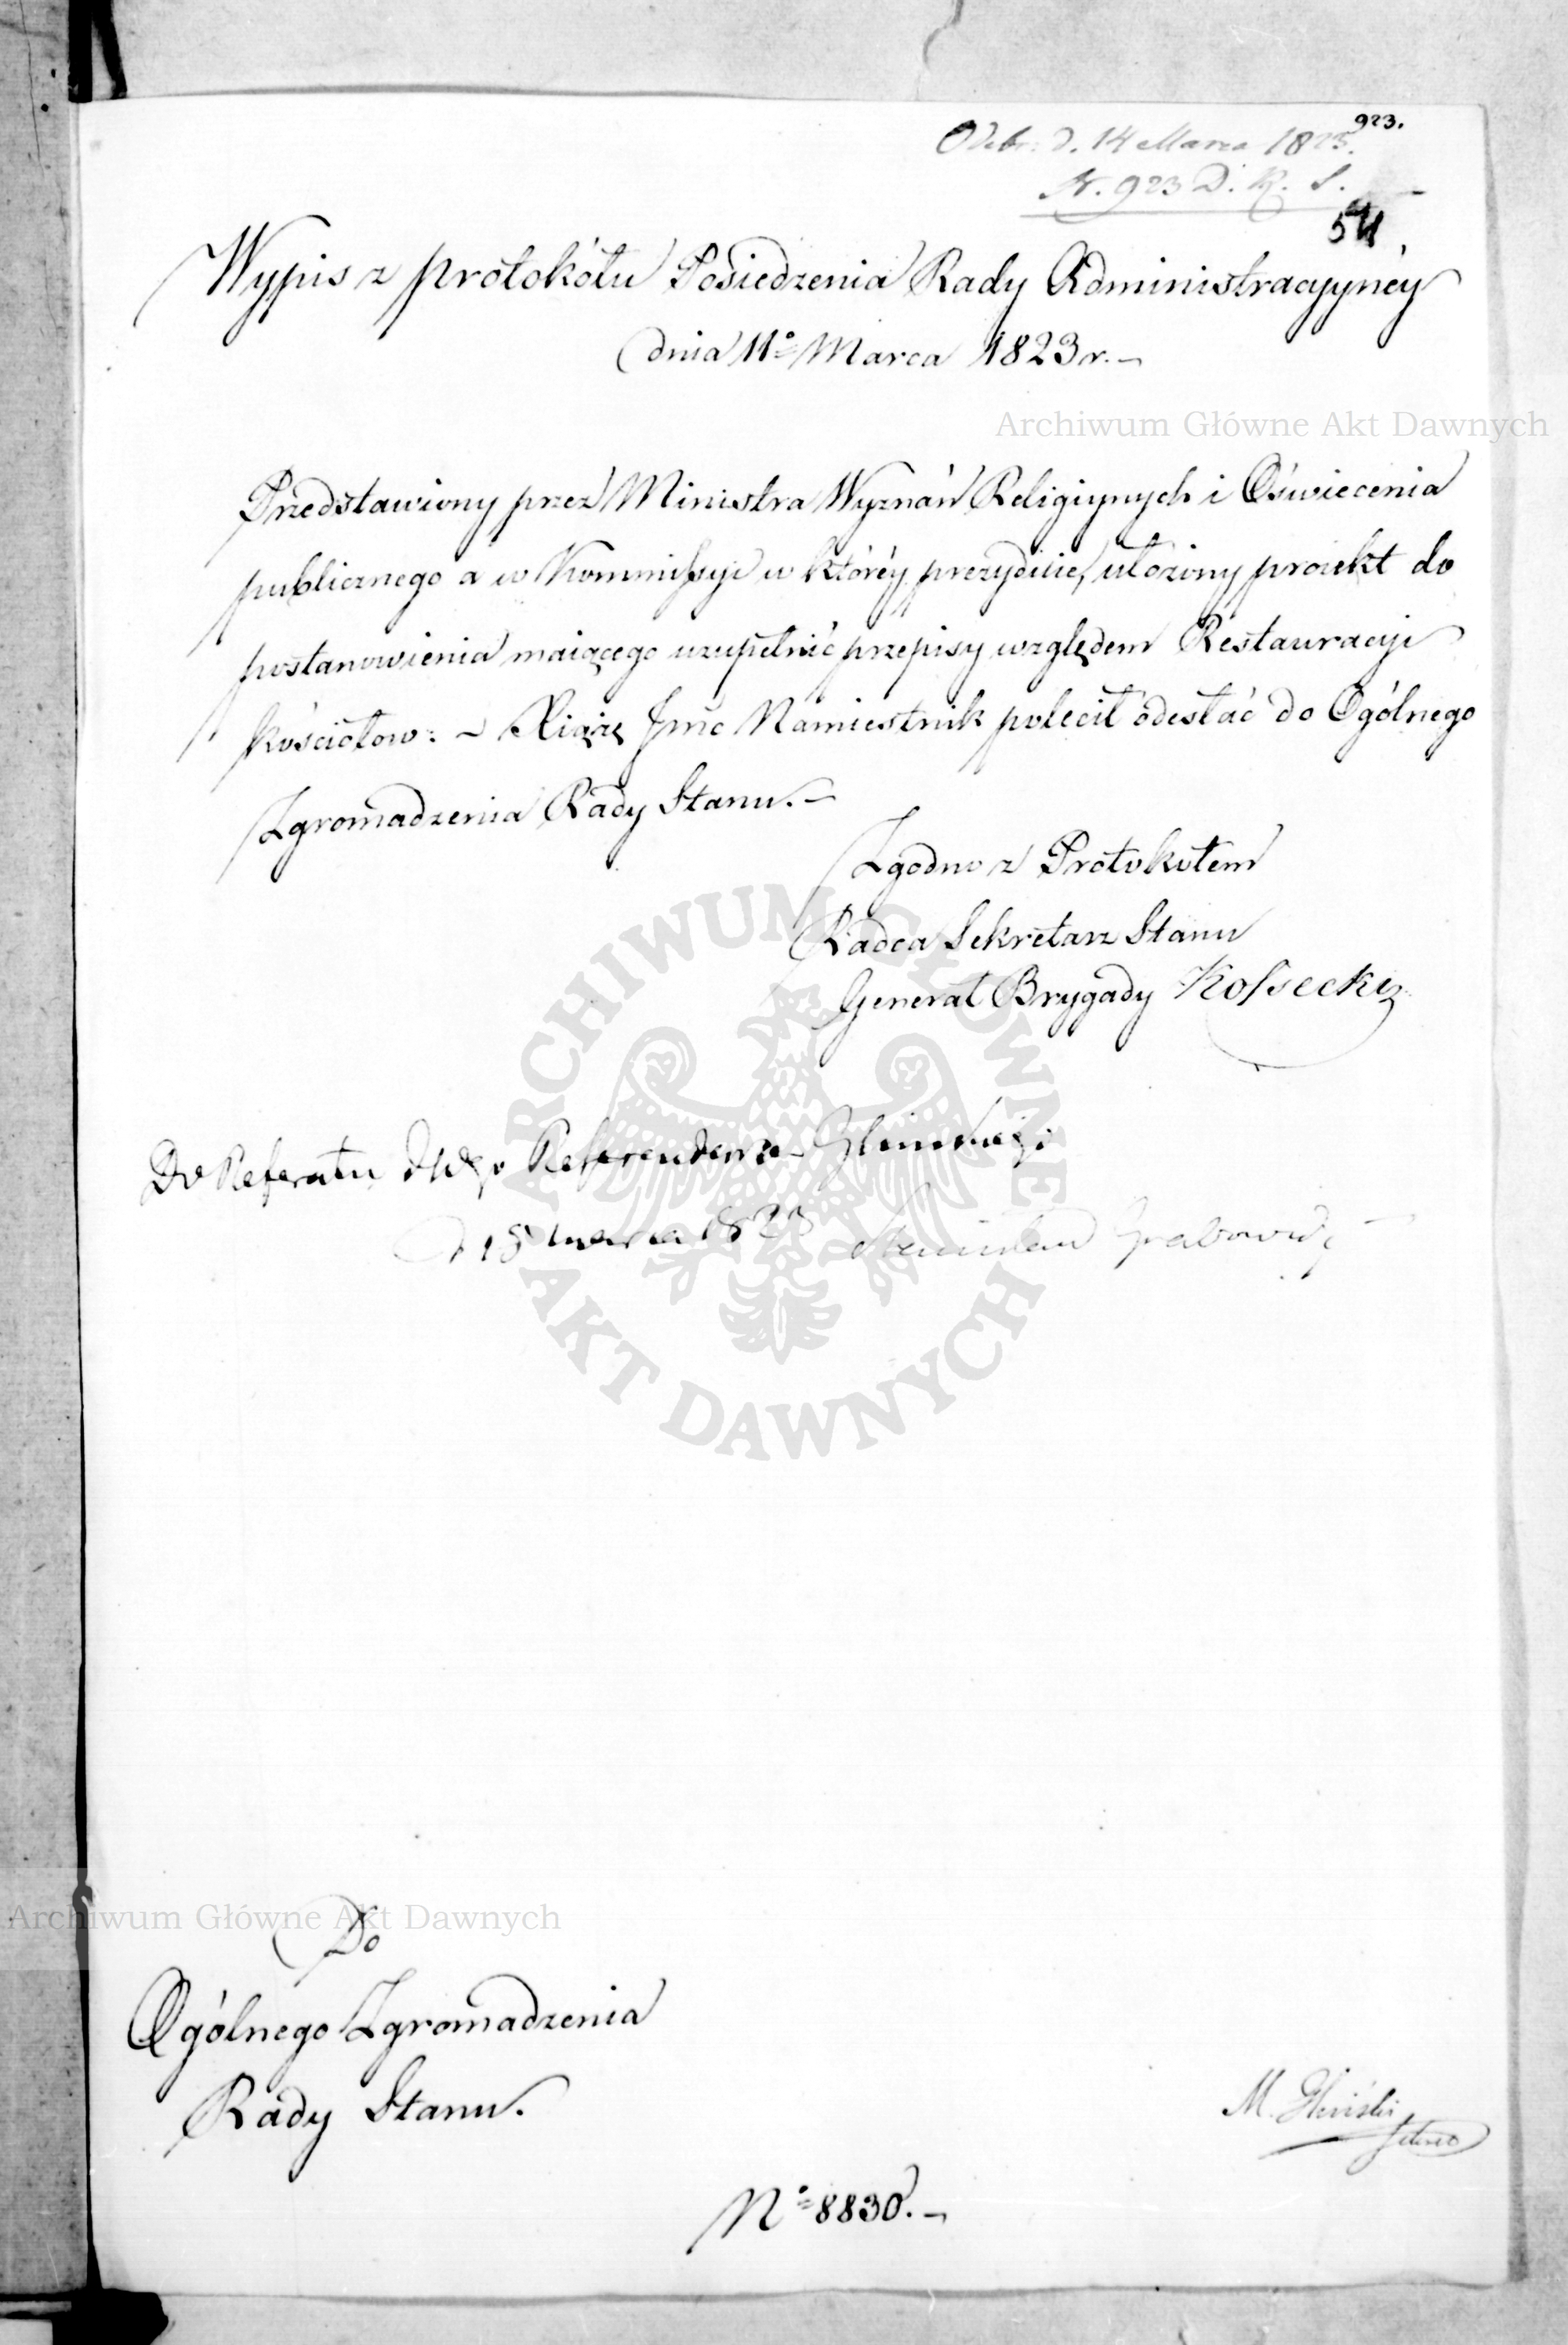 923.
Odebr: d. 14 Marca 1823.
Nr. 923 D. R. S.
54
Wypis z protokółu Posiedzenia Rady Administracyyney
dnia 11º Marca 1823 r.—
Archiwum Główne Akt Dawnych
Przedstawiony przez Ministra Wyznań Religiynych i Oświecenia
publicznego a w Kommissyi w któréy prezyduie, ułożony proiekt do
postanowienia maiącego uzupełnić przepisy względem Restauracyi
kościołow: — Xiążę Jmć Namiestnik polecił odesłać do Ogólnego
Zgromadzenia Rady Stanu.—
Zgodno z Protokółem
Radca Sekretarz Stanu
Generał Brygady Kossecki
ARCHIWUM GŁÓWNE AKT DAWNYCH
Do Referatu JWgo Referendarza Glinskiego
d 15 marca 1823 Stanisław Grabowski
Archiwum Główne Akt Dawnych
Do
Ogólnego Zgromadzenia
Rady Stanu.
M. Gliński
Nº 8830.—